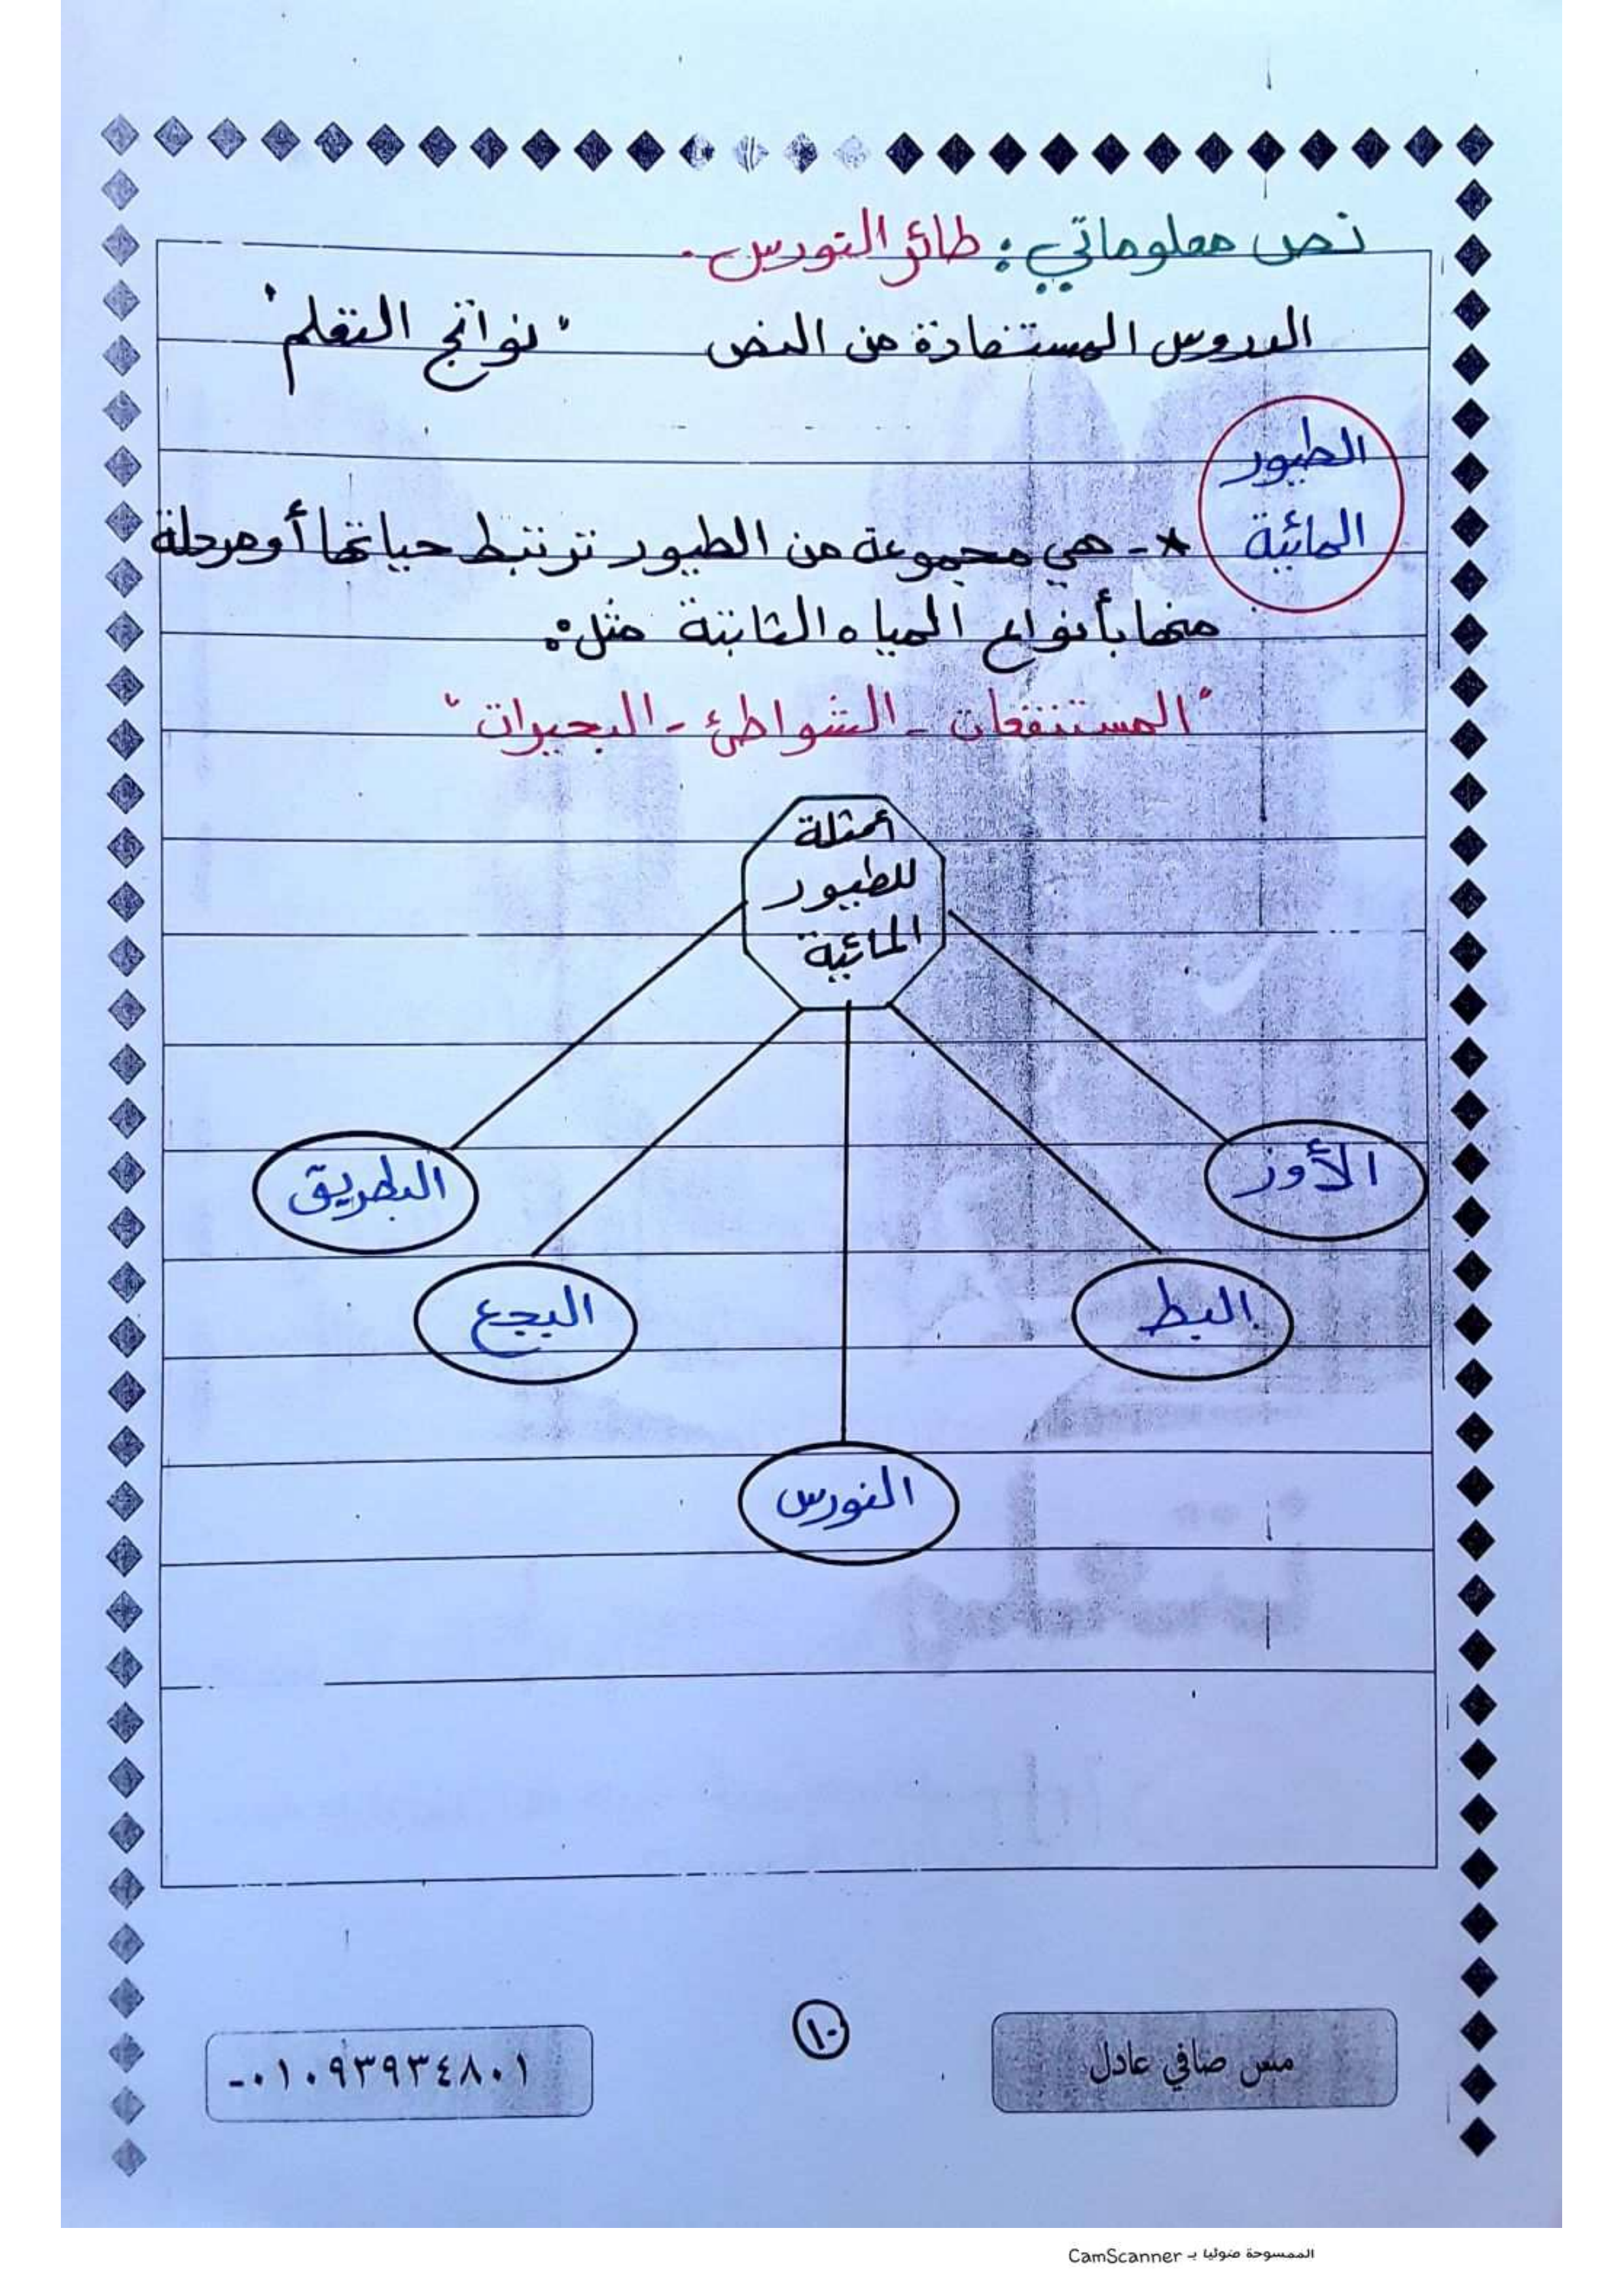 نص معلوماتي : طائر النورس.
الدروس المستفادة من النص " نواتج التعلم "
الطيور
المائية
* - هي مجموعة من الطيور ترتبط حياتها أو مرحلة
منها بأنواع المياه الثابتة مثل:
"المستنقعات - الشواطئ - البحيرات"
أمثلة
للطيور
المائية
الأوز
البط
النورس
البجع
البطريق
مس صافي عادل
١٠
٠١٠٩٣٩٣٤٨٠١-
الممسوحة ضوئيا بـ CamScanner